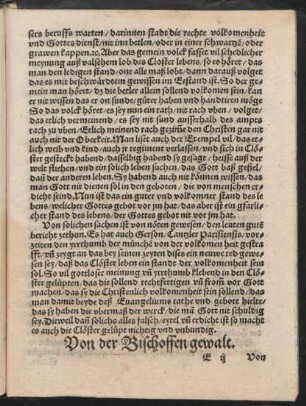 sers beruffs warten / darinnen stadt die rechte volkomenheit
vnd Gottes dienst / nit inn betlen / oder in einer schwartzē / oder
grawen kappen .rc. Aber das gemein volck fasset vil schedlicher
meynung auß walschem lob des Closter lebens, so es höret / das
man den ledigen stand / one alle maß lobe / dann darauß volget
das es mit beschwärdtem gewissen im Eestand ist. So der ge-
mein man höret / dz die betler allein sollend volkomen sein / kan
er nit wissen das er on sünde / güter haben vnd handtieren möge
So das volck höret / es sey nun ein rath / nit rach vben / volget /
das etlich vermeinend / es sey nit sünd ausserhalb des ampts
rach zu vben / Etlich meinend rach gezime den Christen gar nit
auch nit der Oberkeit. Man lise auch der Exempel vil / das et-
lich weib vnd kind / auch jr regiment verlassen / vnd sich in Clö-
ster gesteckt habend / dasselbig habend sy gesagt / heisse auß der
welt fliehen / vnd ein solich leben suchen / das Gott baß gefiel /
dañ der anderen leben. Sy habend auch nit können wissen / das
man Gott nit dienen sol in den geboten / die von menschen er-
dicht sind. Nun ist das ein guter vnd volkomner stand des le-
bens / welcher Gottes gebot vor jm hat / das aber ist ein gfärli-
cher stand des lebens / der Gottes gebot nit vor jm hat.
Von solichen sachen ist von nöten gewesen / den leuten gute
bericht zethun. Es hat auch Gerson, Cantzler Parisiensis, vor-
zeiten den yrrthumb der münche von der volkomenheit gestra-
fft / vñ zeygt an das bey seinen zeyten diß ein newe rede gewe-
sen sey / daß das Closter leben ein stand der volkomenheit sein
sol. So vil gottloser meinung vñ yrrthumb klebend in den Clö-
ster gelüpten / das die sollend rechtfertigen vñ from̃ vor Gott
machen / das sy die Christenlich volkomenheit sein sollend / das
man damit beyde deß Euangeliums rathe vnd gebote hielte /
das sy haben die vbermaß der werck, die mā Gott nit schuldig
sey. Dieweil dañ solichs alles falsch / eytel vñ erdicht ist so mache
es auch die Clöster gelüpt nichtig vnd vnbindig.
Von der Bischoffen gewalt.
E ij Von